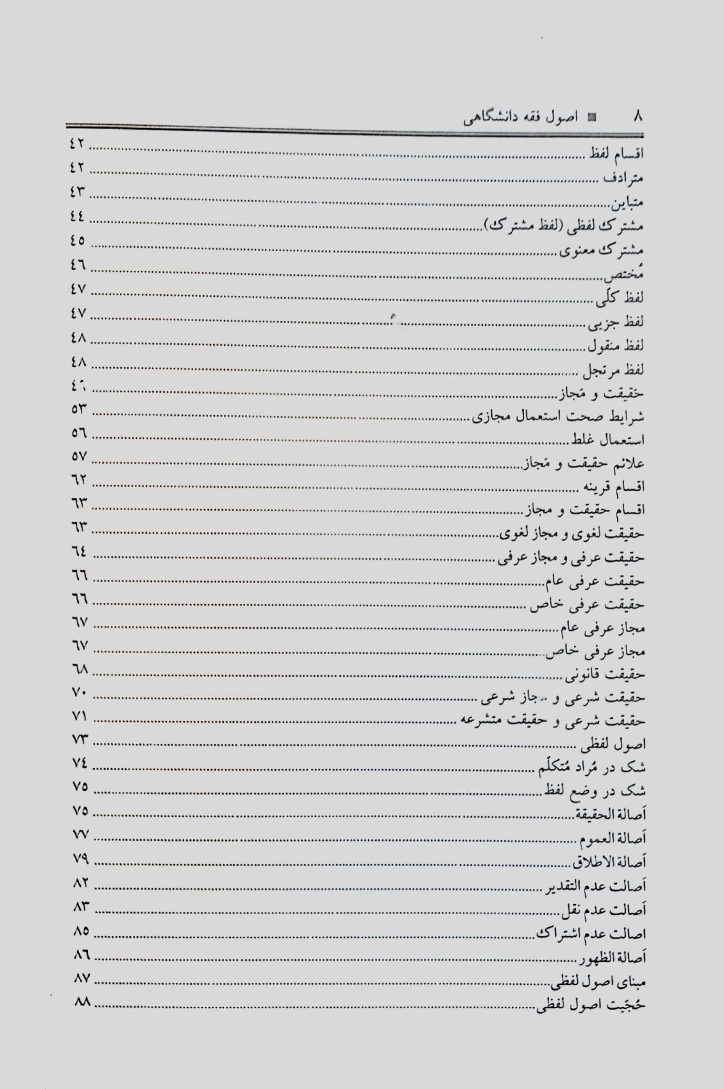 ۸ ■ اصول فقه دانشگاهی
اقسام لفظ ........ ٤٢
مترادف ........ ٤٢
متباین ........ ٤٣
مشترك لفظی (لفظ مشترك) ........ ٤٤
مشترك معنوی ........ ٤٥
مُختص ........ ٤٦
لفظ کلّی ........ ٤٧
لفظ جزیی ........ ٤٧
لفظ منقول ........ ٤٨
لفظ مرتجل ........ ٤٨
حَقیقت و مَجاز ........
شرایط صحت استعمال مجازی ........ ٥٣
استعمال غلط ........ ٥٦
علائم حقیقت و مَجاز ........ ٥٧
اقسام قرینه ........ ٦٢
اقسام حقیقت و مجاز ........ ٦٣
حقیقت لغوی و مجاز لغوی ........ ٦٣
حقیقت عرفی و مجاز عرفی ........ ٦٤
حقیقت عرفی عام ........ ٦٦
حقیقت عرفی خاص ........ ٦٦
مجاز عرفی عام ........ ٦٧
مجاز عرفی خاص ........ ٦٧
حقیقت قانونی ........ ٦٨
حقیقت شرعی و مجاز شرعی ........ ٧٠
حقیقت شرعی و حقیقت متشرعه ........ ٧١
اصول لفظی ........ ٧٣
شک در مُراد مُتکلّم ........ ٧٤
شک در وضع لفظ ........ ٧٥
اَصالة الحقیقة ........ ٧٥
اَصالة العموم ........ ٧٧
اَصالة الاطلاق ........ ٧٩
اَصالت عدم التقدیر ........ ٨٢
اَصالت عدم نقل ........ ٨٣
اصالت عدم اشتراك ........ ٨٥
اَصالة الظهور ........ ٨٦
مبنای اصول لفظی ........ ٨٧
حُجیّت اصول لفظی ........ ٨٨